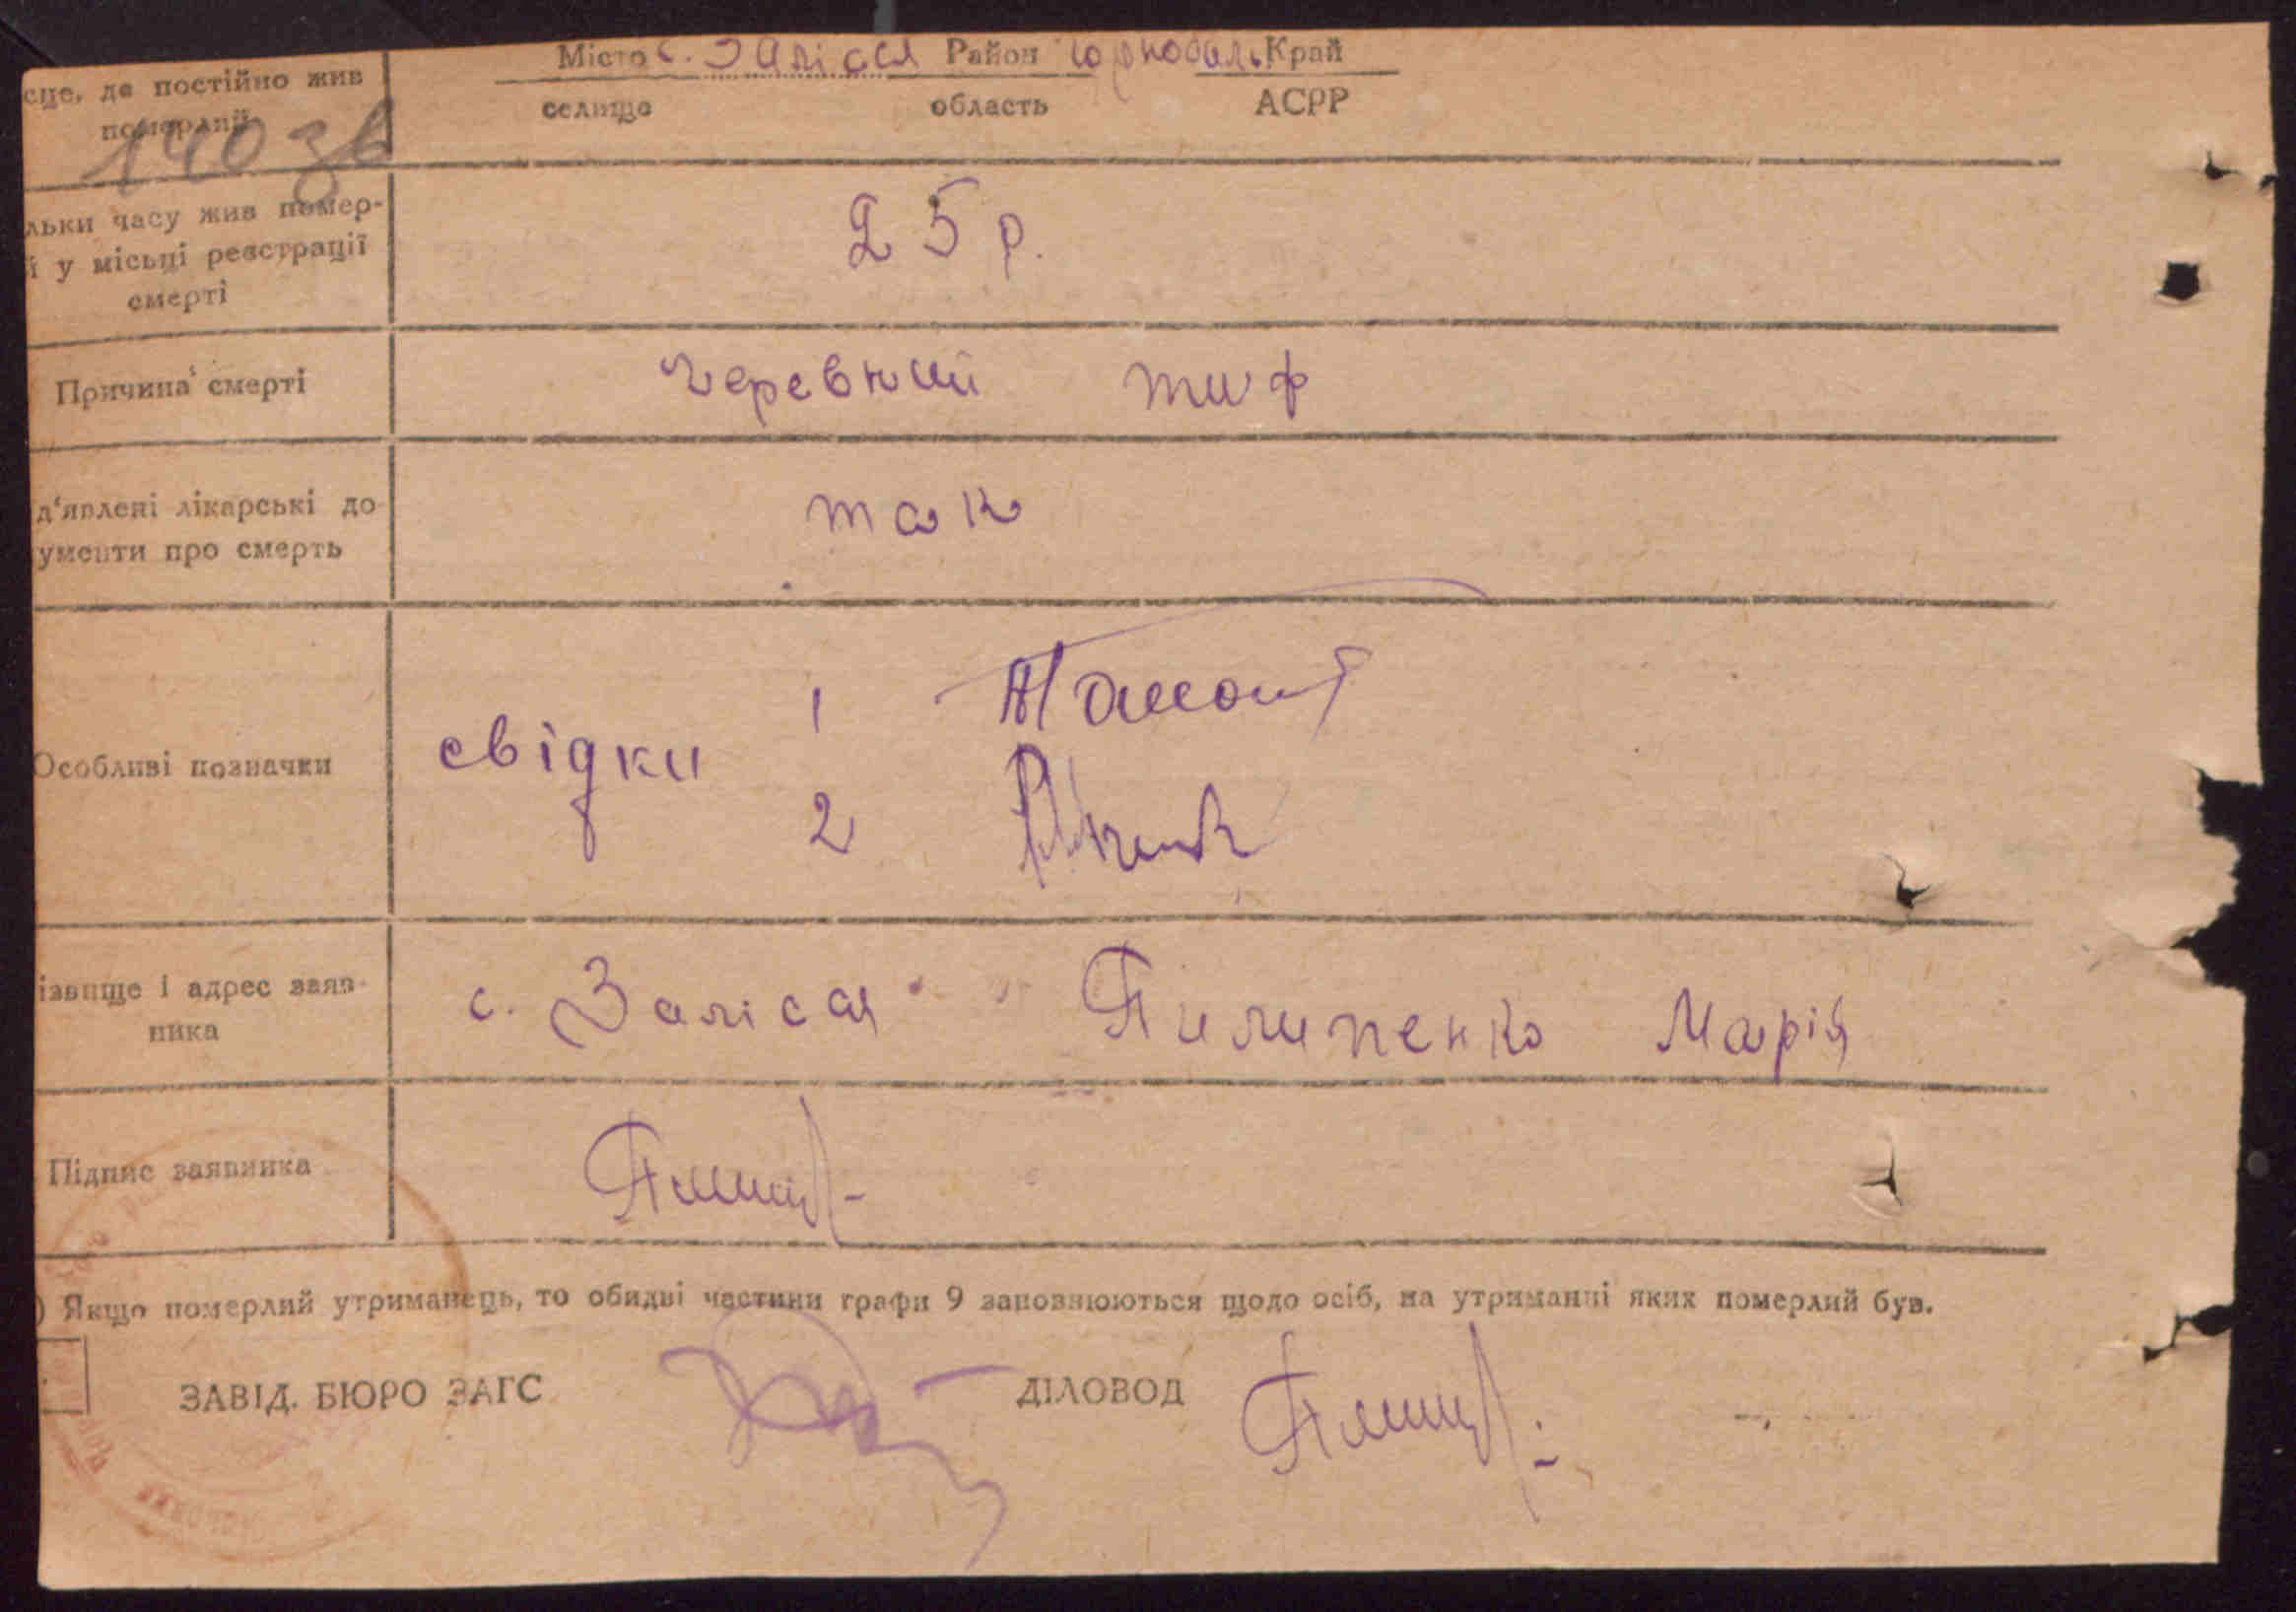 Місто с. Залісся Район Чорнобиль Край
сце, де постійно жив померлий
селище область АСРР
140 зв
льки часу жив помер-
й у місьці реєстрації
смерті
25 р.
Причина смерті
черевний тиф
д'явлені лікарські до-
ументи про смерть
так
Особливі позначки
свідки 1
2
ізвище і адрес заяв-
ника
с. Залісся Пилипенко Марія
Підпис заявника
) Якщо померлий утриманець, то обидві частини графи 9 заповнюються щодо осіб, на утриманні яких померлий був.
ЗАВІД. БЮРО ЗАГС ДІЛОВОД